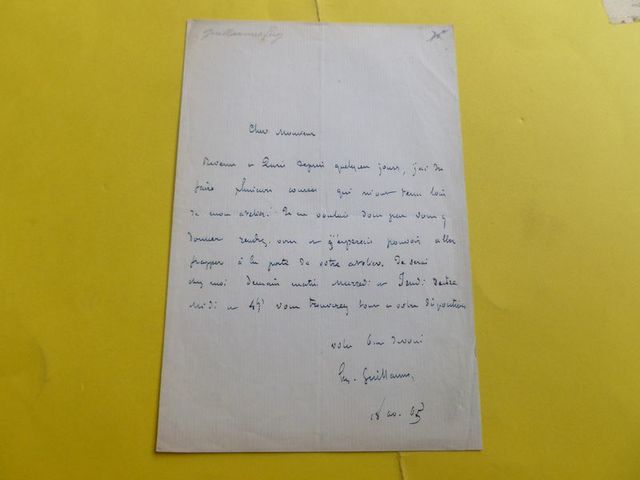 Guillaume Eug
Cher Monsieur
Revenu à Paris depuis quelques jours, j'ai dû
faire plusieurs courses qui m'ont tenu loin
de mon atelier. Je ne voulais donc pas vous y
donner rendez-vous et j'espérais pouvoir aller
frapper à la porte de votre atelier. Je serai
chez moi demain matin mercredi et Jeudi
midi et vous trouverez tout à votre disposition
votre bien dévoué
Eug. Guillaume
18 95